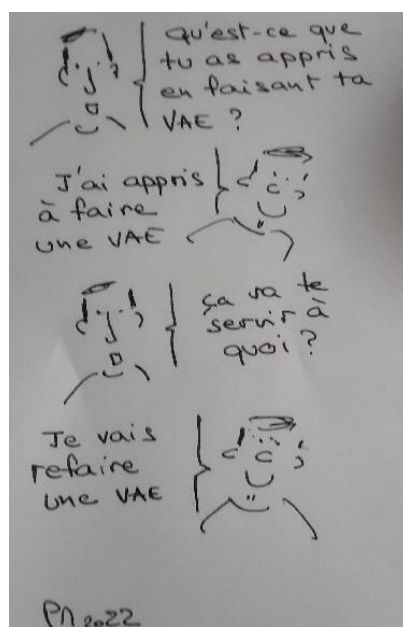 Qu'est-ce que
tu as appris
en faisant ta
VAE ?
J'ai appris
à faire
une VAE
ça va te
servir à
quoi ?
Je vais
refaire
une VAE
2022